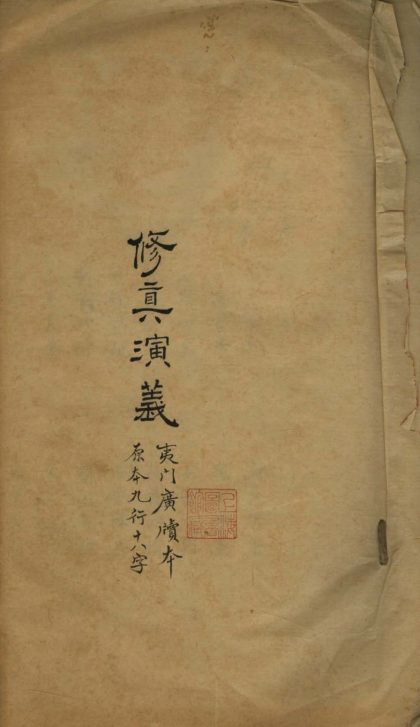 修真演義
夷门廣牘本
原本九行十八字